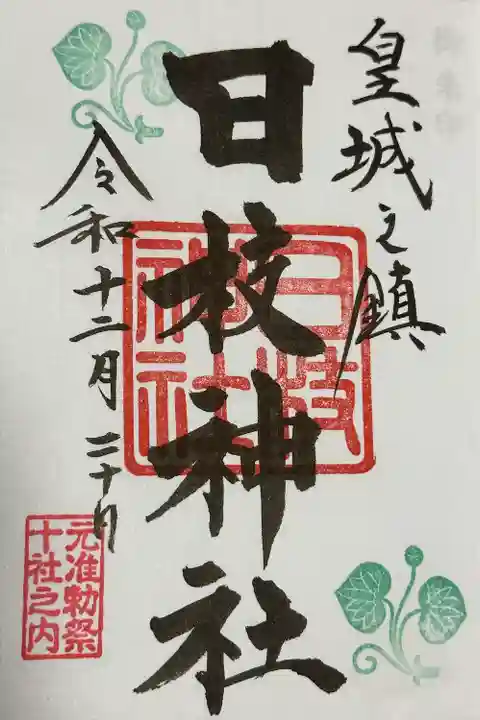 皇城之鎮
日枝神社
日枝
神社
令和十二月二十日
元准勅祭
十社之内